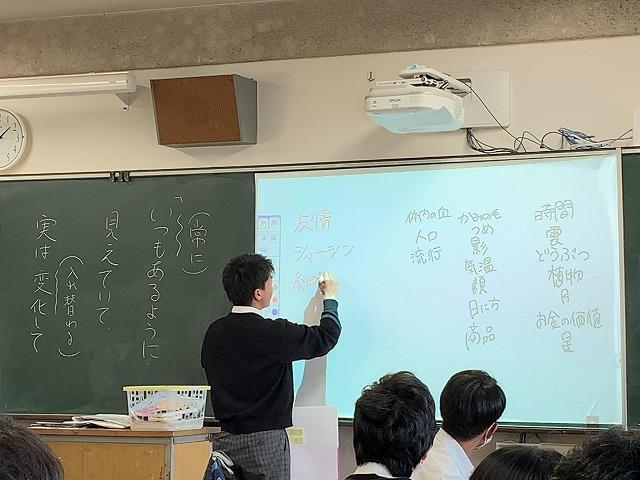 EPSON
(常に)
「いつもあるように
見えていて、
実は変化して
(入れ替わる)
時間
雲
どうぶつ
植物
月
お金の価値
星
かみの毛
つめ
影
気温
顔
商品
体内の血
人口
流行
友情
シャーシン
細